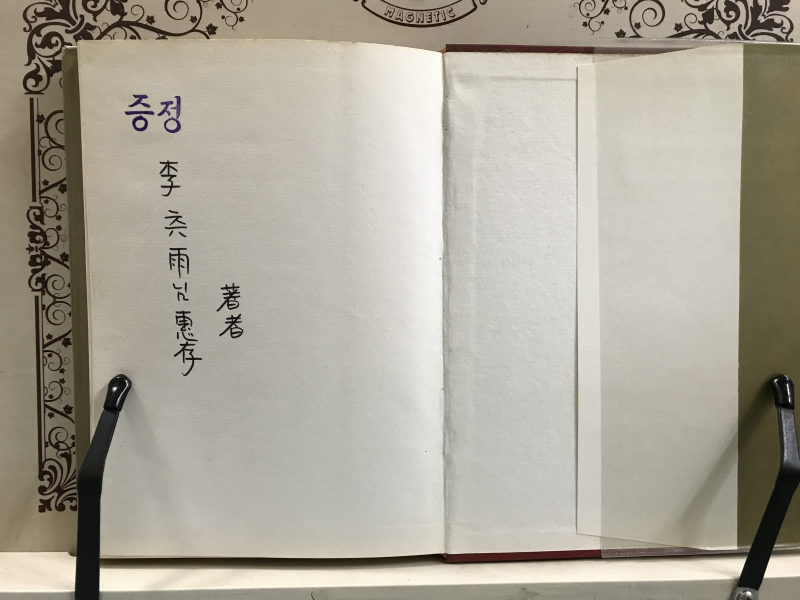 MAGNETIC
증정
李 雨 惠存
著者